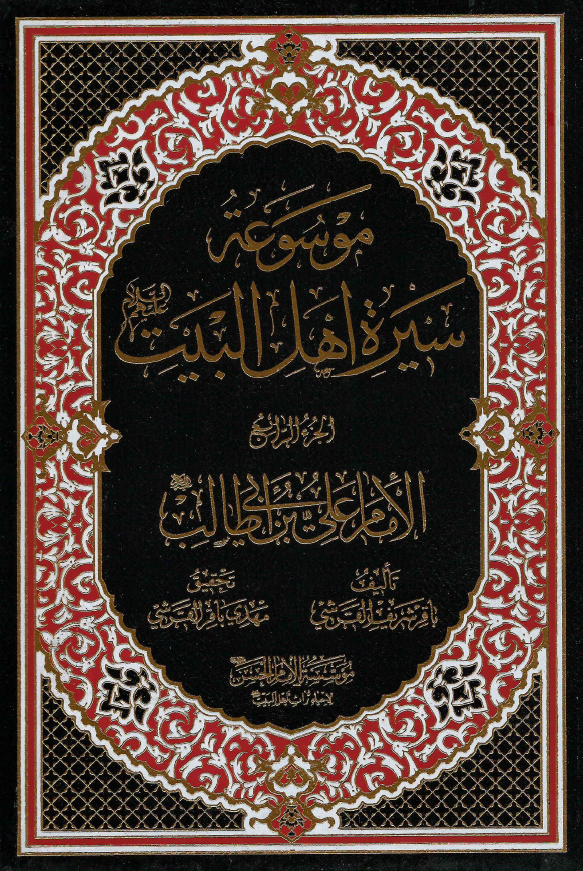 موسوعة
سيرة أهل البيت عليهم السلام
الجزء الرابع
الإمام علي بن أبي طالب
تأليف
تحقيق
باقر شريف القرشي
مهدي باقر القرشي
مؤسسة الإمام الحسن
لإحياء تراث أهل البيت